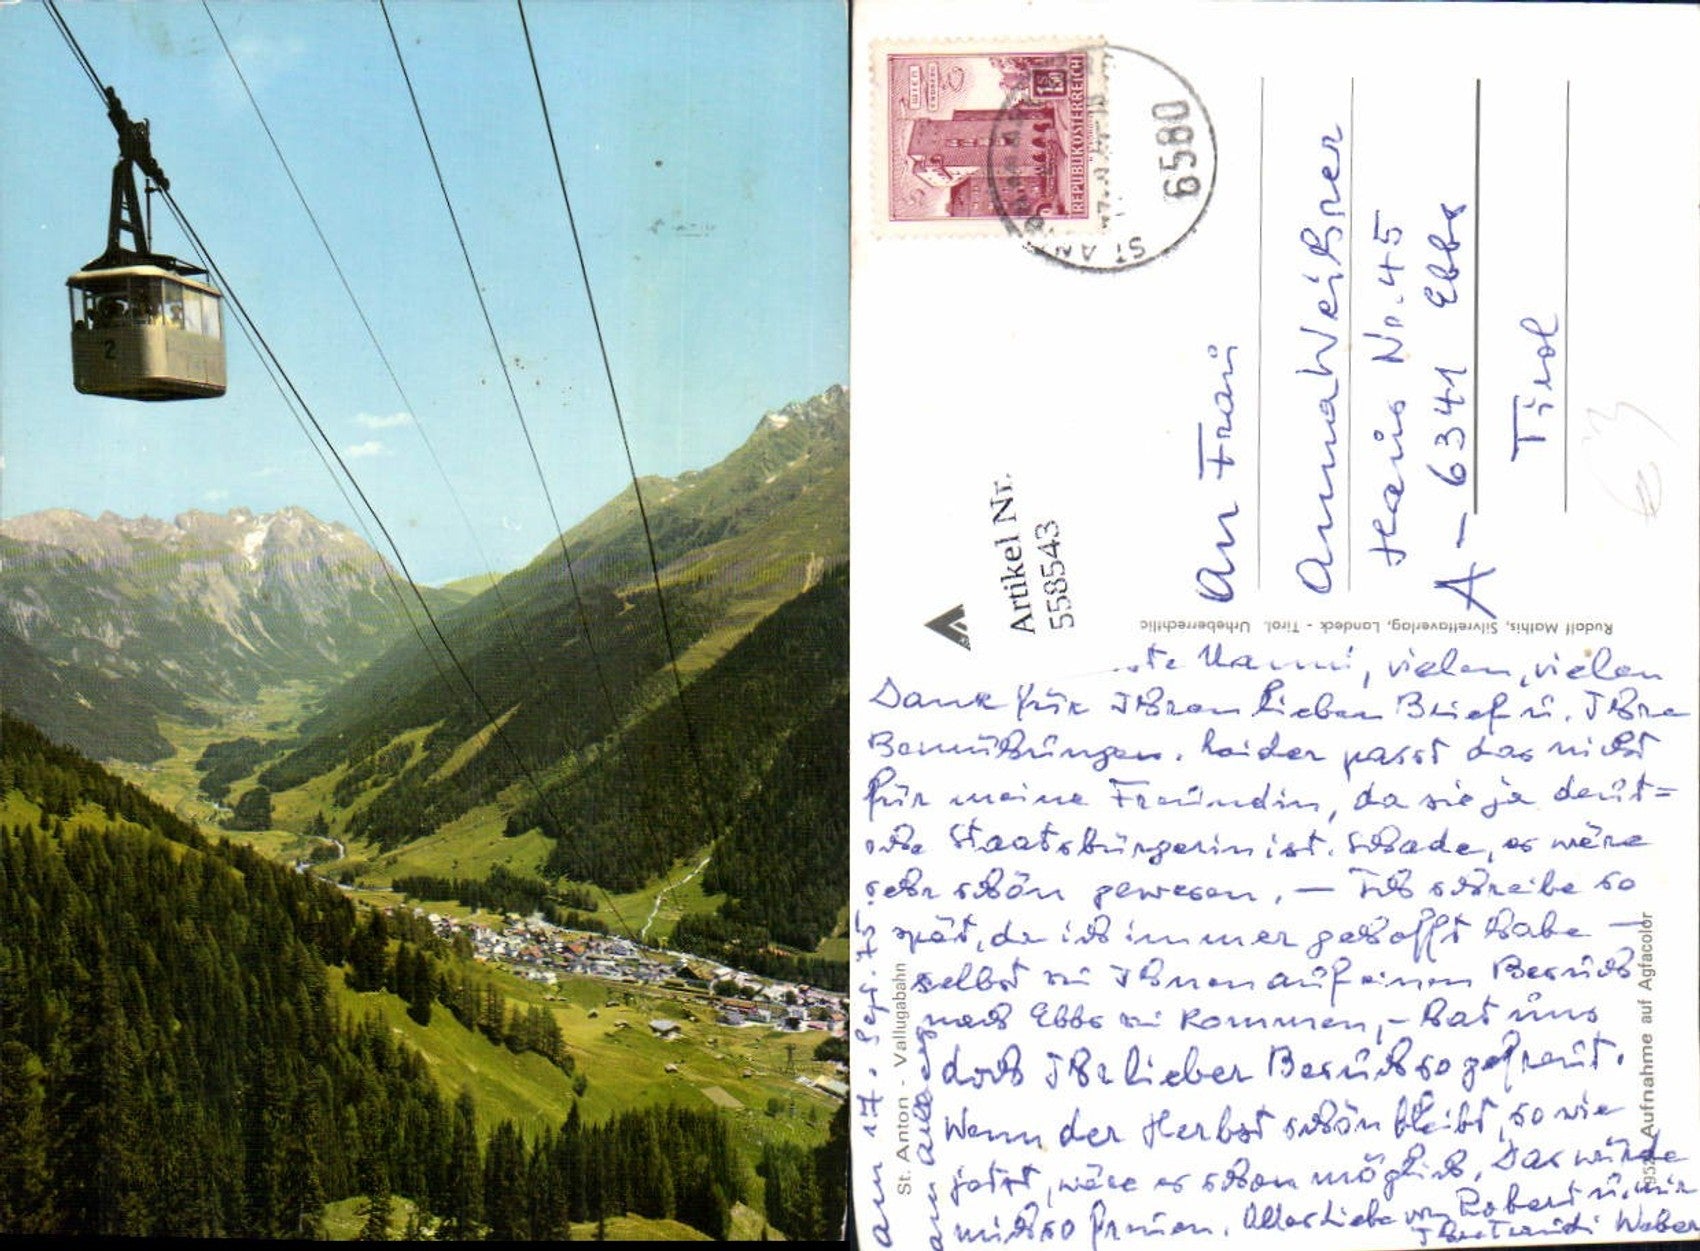 2
WIEN
ERDBERG
S 1.50
REPUBLIK ÖSTERREICH
6580
ST. AN
Artikel Nr.
558543
An Frau
Anna Weißner
Haus No. 45
A-6341 Ebbs
Tirol
Rudolf Mathis, Silvrettaverlag, Landeck - Tirol. Urheberrechtlic
St. Anton - Vallugabahn
Aufnahme auf Agfacolor
am 17. Sept. 75
Nanni, vielen, vielen
Dank für Ihren lieben Brief u. Ihre
Bemühungen. Leider passt das nicht
für meine Freundin, da sie ja deut=
sche Staatsbürgerin ist. Schade, es wäre
sehr schön gewesen. – Ich schreibe so
spät, da ich immer gehofft habe –
selbst zu Ihnen auf einen Besuch
nach Ebbs zu kommen, – hat uns
doch Ihr lieber Besuch so gefreut.
Wenn der Herbst schön bleibt, so wie
jetzt, wäre es schon möglich. Das würde
mich so freuen. Alles Liebe von Robert u. mir
Ihre Traudi Weber